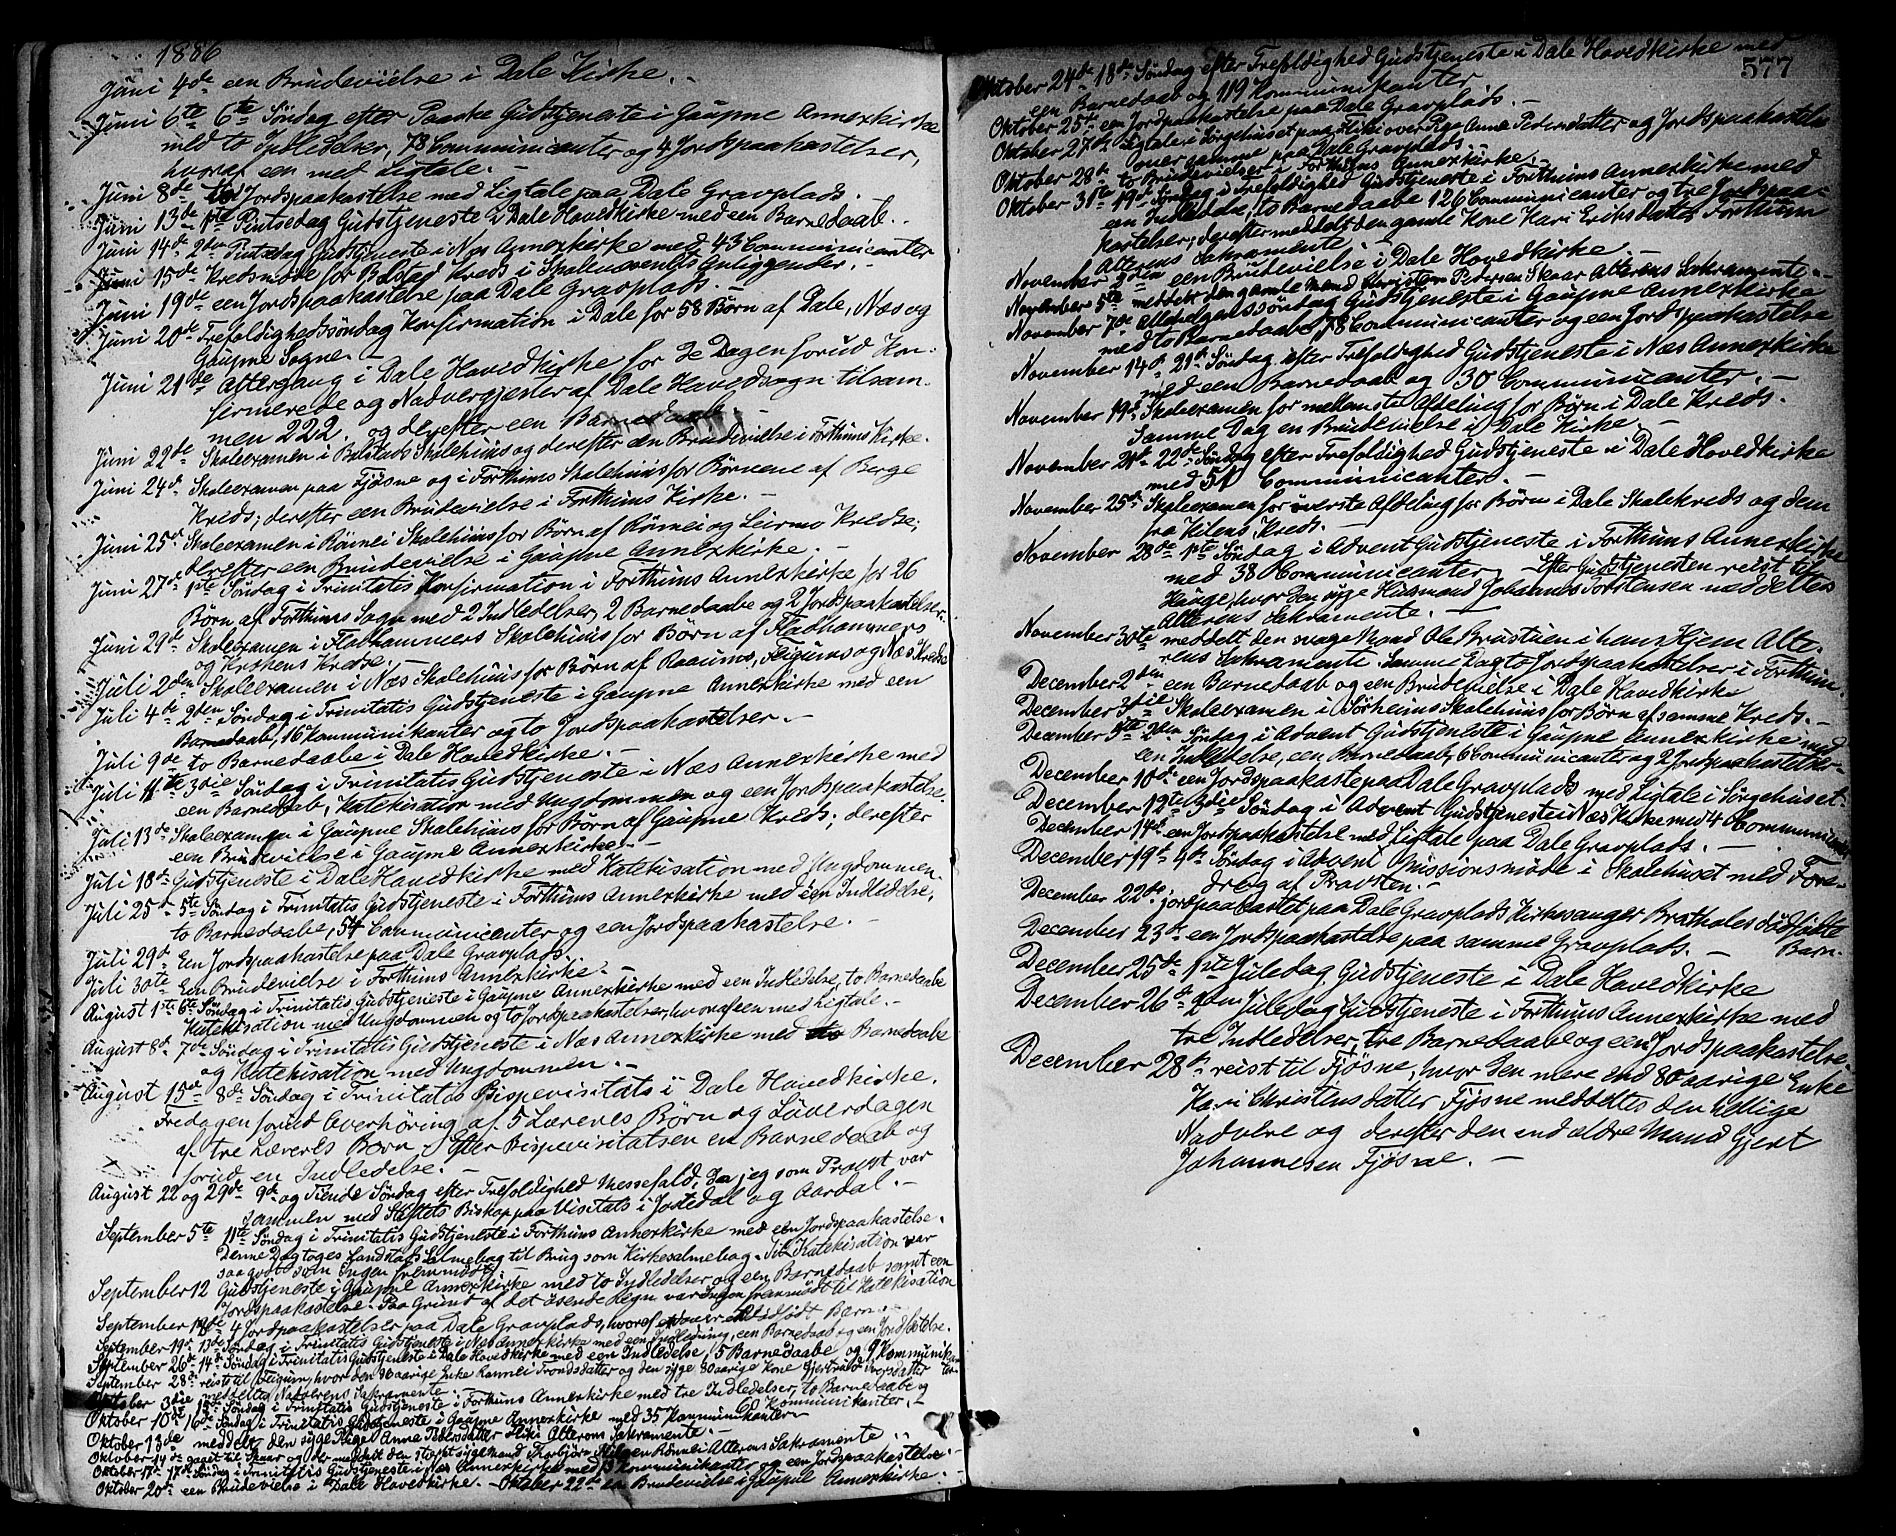 1886
Juni 4de een Brudevielse i Dale Kirke. -
Juni 6te 6te Söndag efter Paaske Gudstjeneste i Gaupne Annexkirke
med to Indledelser, 78 Communicanter og 4 Jordspaakastelser,
hvoraf een med Ligtale. -
Juni 8de Jordspaakastelse med Ligtale paa Dale Gravplads. -
Juni 13de 1ste Pintsedag Gudstjeneste i Dale Hovedkirke med een Barnedaab. -
Juni 14de 2den Pintsedag Gudstjeneste i Næs Annexkirke med 43 Communicanter
Juni 15de Kredsmöde for Bolstad Kreds i Skolevæsenets Anliggender. -
Juni 19de een Jordspaakastelse paa Dale Gravplads. -
Juni 20de Trefoldighedssöndag Konfirmation i Dale for 58 Börn af Dale, Næs og
Gaupne Sogne. -
Juni 21de Altergang i Dale Hovedkirke for de Dagen forud Kon-
firmerede og Nadvergjester af Dale Hovedsogn tilsam-
men 222. og derefter een Barnedaab. -
Juni 22de Skoleexamen i Bolstads Skolehuus og derefter een Brudevielse i Forthuns Kirke.
Juni 24d. Skoleexamen paa Fjösne og i Forthuns Skolehuus for Börnene af Berge
Kreds; derefter een Brudevielse i Forthuns Kirke. -
Juni 25de Skoleexamen i Rönnei Skolehuus for Börn af Rönnei og Leirmo Kredse;
derefter een Brudevielse i Gaupne Annexkirke. -
Juni 27de 1ste Söndag i Trinitatis Konfirmation i Forthuns Annexkirke for 26
Börn af Forthuns Sogn med 2 Indledelser, 2 Barnedaabe og 2 Jordspaakastelser.
Juni 29d. Skoleexamen i Flahammers Skolehuus for Börn af Flahammers
og Krokens Kredse. -
Juli 2den Skoleexamen i Næs Skolehuus for Börn af Raaums, Feigums og Næs Kredse
Juli 4de 2den Söndag i Trinitatis Gudstjeneste i Gaupne Annexkirke med een
Barnedaab, 16 Kommunikanter og to Jordspaakastelser. -
Juli 9de to Barnedaabe i Dale Hovedkirke. -
Juli 11te 3die Söndag i Trinitatis Gudstjeneste i Næs Annexkirke med
een Barnedaab, Katekisation med Ungdommen og een Jordspaakastelse.
Juli 13de Skoleexamen i Gaupne Skolehuus for Börn af Gaupne Kreds; derefter
een Brudevielse i Gaupne Annexkirke. -
Juli 18de Gudstjeneste i Dale Hovedkirke med Katekisation med Ungdommen.
Juli 25d. 5te Söndag i Trinitatis Gudstjeneste i Forthuns Annexkirke med een Indledelse,
to Barnedaabe, 54 Communicanter og een Jordspaakastelse.
Juli 29d. Een Jordspaakastelse paa Dale Gravplads.
Juli 30te Een Brudevielse i Forthuns Annexkirke. -
August 1ste 6te Söndag i Trinitatis Gudstjeneste i Gaupne Annexkirke med een Indledelse, to Barnedaabe
Katekisation med Ungdommen og to Jordspaakastelser, hvoraf een med Ligtale. -
August 8d. 7de Söndag i Trinitatis Gudstjeneste i Næs Annexkirke med Barnedaabe
og Katekisation med Ungdommen. -
August 15d. 8de Söndag i Trinitatis Bispevisitats i Dale Hovedkirke.
Fredagen forud Overhöring af 5 Læreres Börn og Löverdagen
af tre Læreres Börn. Efter Bispevisitatsen en Barnedaab og
forud en Indledelse. -
August 22 og 29de 9de og Tiende Söndag efter Trefoldighed Messefald, da jeg som Provst var
sammen med Stiftets Biskop paa Visitats i Jostedal og Aardal. -
September 5te 11te Söndag i Trinitatis Gudstjeneste i Forthuns Annexkirke med een Jordspaakastelse.
Denne Dag toges Landstads Salmebog til Brug som Kirkesalmebog. Til Katekisation var
saagodtsom Ingen fremmödt.
September 12 Gudstjeneste i Gaupne Annexkirke med to Indledelser og een Barnedaab samt een
Jordspaakastelse. Paa Grund af det ösende Regn var Ingen fremmödt til Katekisation
September 4 Jordspaakastelser paa Dale Gravplads, hvoraf over dödfödt Barn. -
September 19d. 13de Söndag i Trinitatis Gudstjeneste i Næs Annexkirke med een Indledning, een Barnedaab og een Jordfæstelse.
September 26de 14de Söndag i Trinitatis Gudstjeneste i Dale Hovedkirke med een Indledelse, 5 Barnedaabe og 9 Kommunikan-
September 28d. reiste til Feigum, hvor den 80aarige Enke Rannei Trondsdatter og den syge 80aarige Kone Gjertrud Iversdatter ter.
meddeltes Nadverens Sakramente.
Oktober 3die 15de Söndag i Trinitatis Gudstjeneste i Forthuns Annexkirke med tre Indledelser, to Barnedaabe og
60 Kommunikanter. -
Oktober 10de 16de Söndag i Trinitatis Gudstjeneste i Gaupne Annexkirke med 35 Kommunikanter
Oktober 13de meddelt den syge Pige Anna Pedersdatter Fliki Alterens Sakramente. -
Oktober 14de gaaet til Skaar og der meddelt den sterkt syge Mand Thorbjörn Rönnei Alterens Sakramente
Oktober 17de 17de Söndag i Trinitatis Gudstjeneste i Næs Annexkirke med 13 Kommunikanter og een Jordspaakastelse. -
Oktober 20de een Brudevielse i Dale Hovedkirke. - Oktober 22de en Brudevielse i Gaupne Annexkirke. -
577
Oktober 24de 18de Söndag efter Trefoldighed Gudstjeneste i Dale Hovedkirke med
een Barnedaab og 119 Kommunikanter
Oktober 25de een Jordspaakastelse paa Dale Gravplads. -
Oktober 27de Ligtale i Sörgehuset paa Fliki over Pige Anna Pedersdatter og Jordspaakastelse
over samme paa Dale Gravplads. -
Oktober 28de to Brudevielser i Forthuns Annexkirke. -
Oktober 31te 19de Söndag i Trefoldighed Gudstjeneste i Forthuns Annexkirke med
een Indledelse, to Barnedaabe 126 Communicanter og tre Jordspaa-
kastelser; derefter meddelt den gamle Kone Kari Eriksdatter Forthun
Alterens Sakramente. -
November een Brudevielse i Dale Hovedkirke. -
November 5te meddelt den gamle Mand Christen Pedersen Skaar Alterens Sakramente. -
November 7de Allehelgens Söndag Gudstjeneste i Gaupne Annexkirke
med to Barnedaabe, 78 Communicanter og een Jordspaakastelse
November 14d. 21de Söndag efter Trefoldighed Gudstjeneste i Næs Annexkirke
med een Barnedaab og 30 Communicanter. -
November 19d. Skoleexamen for mellemste Afdeling for Börn i Dale Kreds.
Samme Dag en Brudevielse i Dale Kirke. -
November 21d. 22de Söndag efter Trefoldighed Gudstjeneste i Dale Hovedkirke
med 51 Communicanter. -
November 25de Skoleexamen for överste Afdeling for Börn i Dale Skolekreds og dem
fra Kilens Kreds. -
November 28de 1ste Söndag i Advent Gudstjeneste i Forthuns Annexkirke
med 38 Communicanter. Efter Gudstjenesten reist til
Hauge, hvor den syge Huusmand Johannes Torstensen meddeltes
Alterens Sakramente. -
November 30te meddelt den svage Mand Ole Brustuen i hans Hjem Alte-
rens Sakramente. Samme Dag to Jordspaakastelser i Forthun.
December 2den een Barnedaab og een Brudevielse i Dale Hovedkirke
December 3die Skoleexamen i Sörheims Skolehuus for Börn af samme Kreds. -
December 5te 2den Söndag i Advent Gudstjeneste i Gaupne Annexkirke med
een Indledelse, een Barnedaab, 6 Communicanter og 2 Jordspaakastelser
December 10de een Jordspaakaste paa Dale Gravplads med Ligtale i Sörgehuset
December 12te 3die Söndag i Advent Gudstjeneste i Næs Kirke med 40 Communicanter
December 14d. een Jordspaakastelse med Ligtale paa Dale Gravplads. -
December 19d. 4de Söndag i Advent Missionsmöde i Skolehuset med Fore-
drag af Provsten. -
December 22de jordspaakastet paa Dale Gravplads Kirkesanger Bruholes dödfödte
Barn.
December 23de een Jordspaakastelse paa samme Gravplads. -
December 25de 1ste Juledag Gudstjeneste i Dale Hovedkirke
December 26de 2den Juledag Gudstjeneste i Forthuns Annexkirke med
tre Indledelser, tre Barnedaabe og een Jordspaakastelse.
December 28de reist til Fjösne, hvor den mere end 80aarige Enke
Kari Christensdatter Fjösne meddeltes den hellige
Nadvere og derefter den end ældre Mand Gjert
Johannesen Fjösne. -